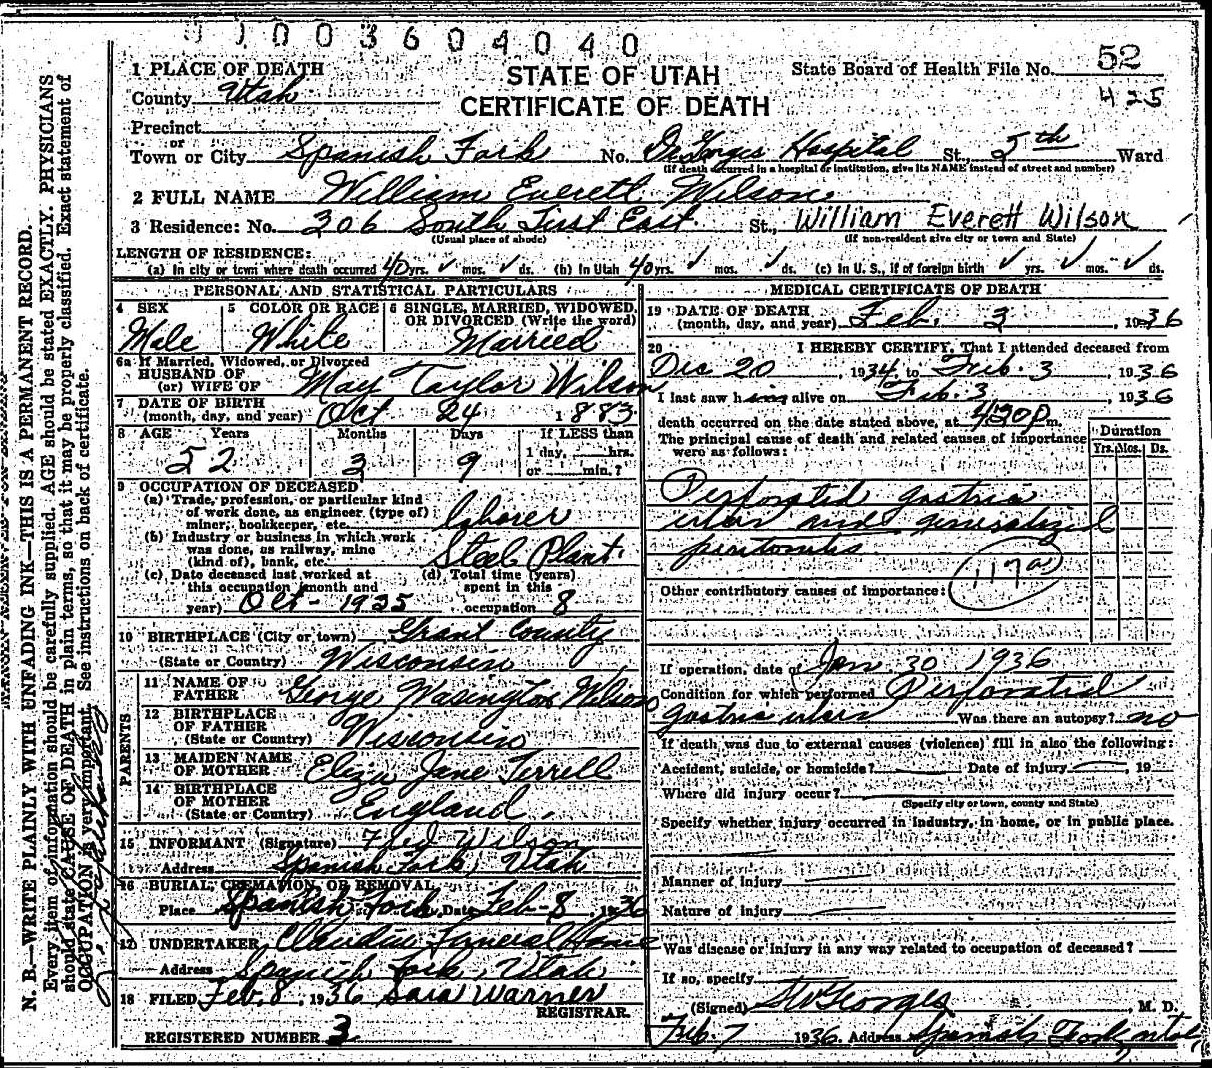 0 1 0 0 3 6 0 4 0 4 0
1 PLACE OF DEATH
STATE OF UTAH
CERTIFICATE OF DEATH
State Board of Health File No. 52
425
County Utah
Precinct
or
Town or City Spanish Fork No. Hospital St., 5th Ward
(If death occurred in a hospital or institution, give its NAME instead of street and number)
2 FULL NAME William Everett Wilson
3 Residence: No. 306 South First East St., William Everett Wilson
(Usual place of abode) (If non-resident give city or town and State)
LENGTH OF RESIDENCE:
(a) In city or town where death occurred 40 yrs. ✓ mos. ✓ ds. (b) In Utah 40 yrs. ✓ mos. ✓ ds. (c) In U. S., if of foreign birth ✓ yrs. ✓ mos. ✓ ds.
PERSONAL AND STATISTICAL PARTICULARS
4 SEX 5 COLOR OR RACE 6 SINGLE, MARRIED, WIDOWED, OR DIVORCED (Write the word)
Male White Married
6a If Married, Widowed, or Divorced
HUSBAND OF
(or) WIFE OF May Taylor Wilson
7 DATE OF BIRTH
(month, day, and year) Oct 24 1883
8 AGE Years Months Days If LESS than
52 3 9 1 day, hrs.
or min.?
9 OCCUPATION OF DECEASED
(a) Trade, profession, or particular kind
of work done, as engineer (type of)
miner, bookkeeper, etc. laborer
(b) Industry or business in which work
was done, as railway, mine
(kind of), bank, etc. Steel Plant
(c) Date deceased last worked at (d) Total time (years)
this occupation (month and spent in this
year) Oct - 1925 occupation 8
10 BIRTHPLACE (City or town) Grant County
(State or Country) Wisconsin
PARENTS
11 NAME OF
FATHER George Wasington Wilson
12 BIRTHPLACE
OF FATHER
(State or Country) Wisconsin
13 MAIDEN NAME
OF MOTHER Eliza Jane Terrell
14 BIRTHPLACE
OF MOTHER
(State or Country) England
15 INFORMANT (Signature) Fred Wilson
Address Spanish Fork, Utah
16 BURIAL, CREMATION, OR REMOVAL
Place Spanish Fork, Date Feb-8, 1936
17 UNDERTAKER Claudin Funeral Home
Address Spanish Fork, Utah
18 FILED Feb. 8, 1936 Sara Warner
REGISTRAR.
REGISTERED NUMBER 3
MEDICAL CERTIFICATE OF DEATH
19 DATE OF DEATH
(month, day, and year) Feb. 3, 1936
20 I HEREBY CERTIFY, That I attended deceased from
Dec 20, 1934, to Feb. 3 1936
I last saw him alive on Feb. 3, 1936
death occurred on the date stated above, at 4:30 p m.
The principal cause of death and related causes of importance
were as follows:
Duration
Yrs. Mos. Ds.
Perforated gastric
ulcer and generalized
peritonitis
117a
Other contributory causes of importance:
If operation, date of Jan. 30 1936
Condition for which performed Perforated
gastric ulcer Was there an autopsy? no
If death was due to external causes (violence) fill in also the following:
Accident, suicide, or homicide? Date of injury , 19
Where did injury occur?
(Specify city or town, county and State)
Specify whether injury occurred in industry, in home, or in public place.
Manner of injury
Nature of injury
Was disease or injury in any way related to occupation of deceased?
If so, specify
(Signed) Georges, M. D.
Feb. 7 1936 Address Spanish Fork, Utah
N. B.—WRITE PLAINLY WITH UNFADING INK—THIS IS A PERMANENT RECORD.
Every item of information should be carefully supplied. AGE should be stated EXACTLY. PHYSICIANS
should state CAUSE OF DEATH in plain terms, so that it may be properly classified. Exact statement of
OCCUPATION is very important. See instructions on back of certificate.